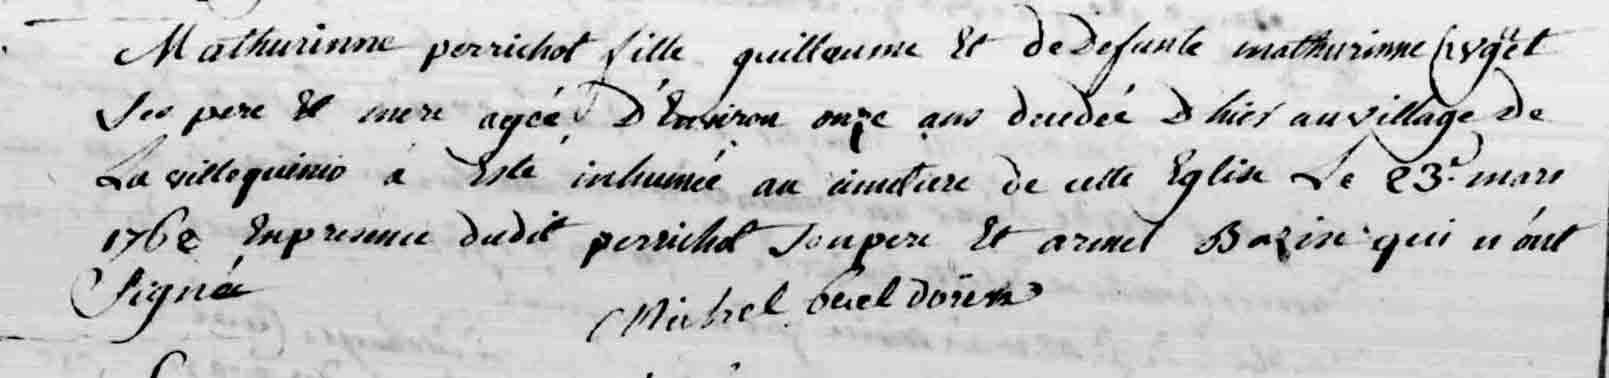 Mathurinne perrichot fille guillaume Et de Defunte mathurinne
Ses pere Et mere agée D'Environ onze ans decedée D'hier au village De
La villeoquinio a Esté inhumée au cimetiere de cette Eglise Le 23e mars
1762 En presence dudit perrichot Son pere Et armel Bazin qui n'ont
Signé
Michel